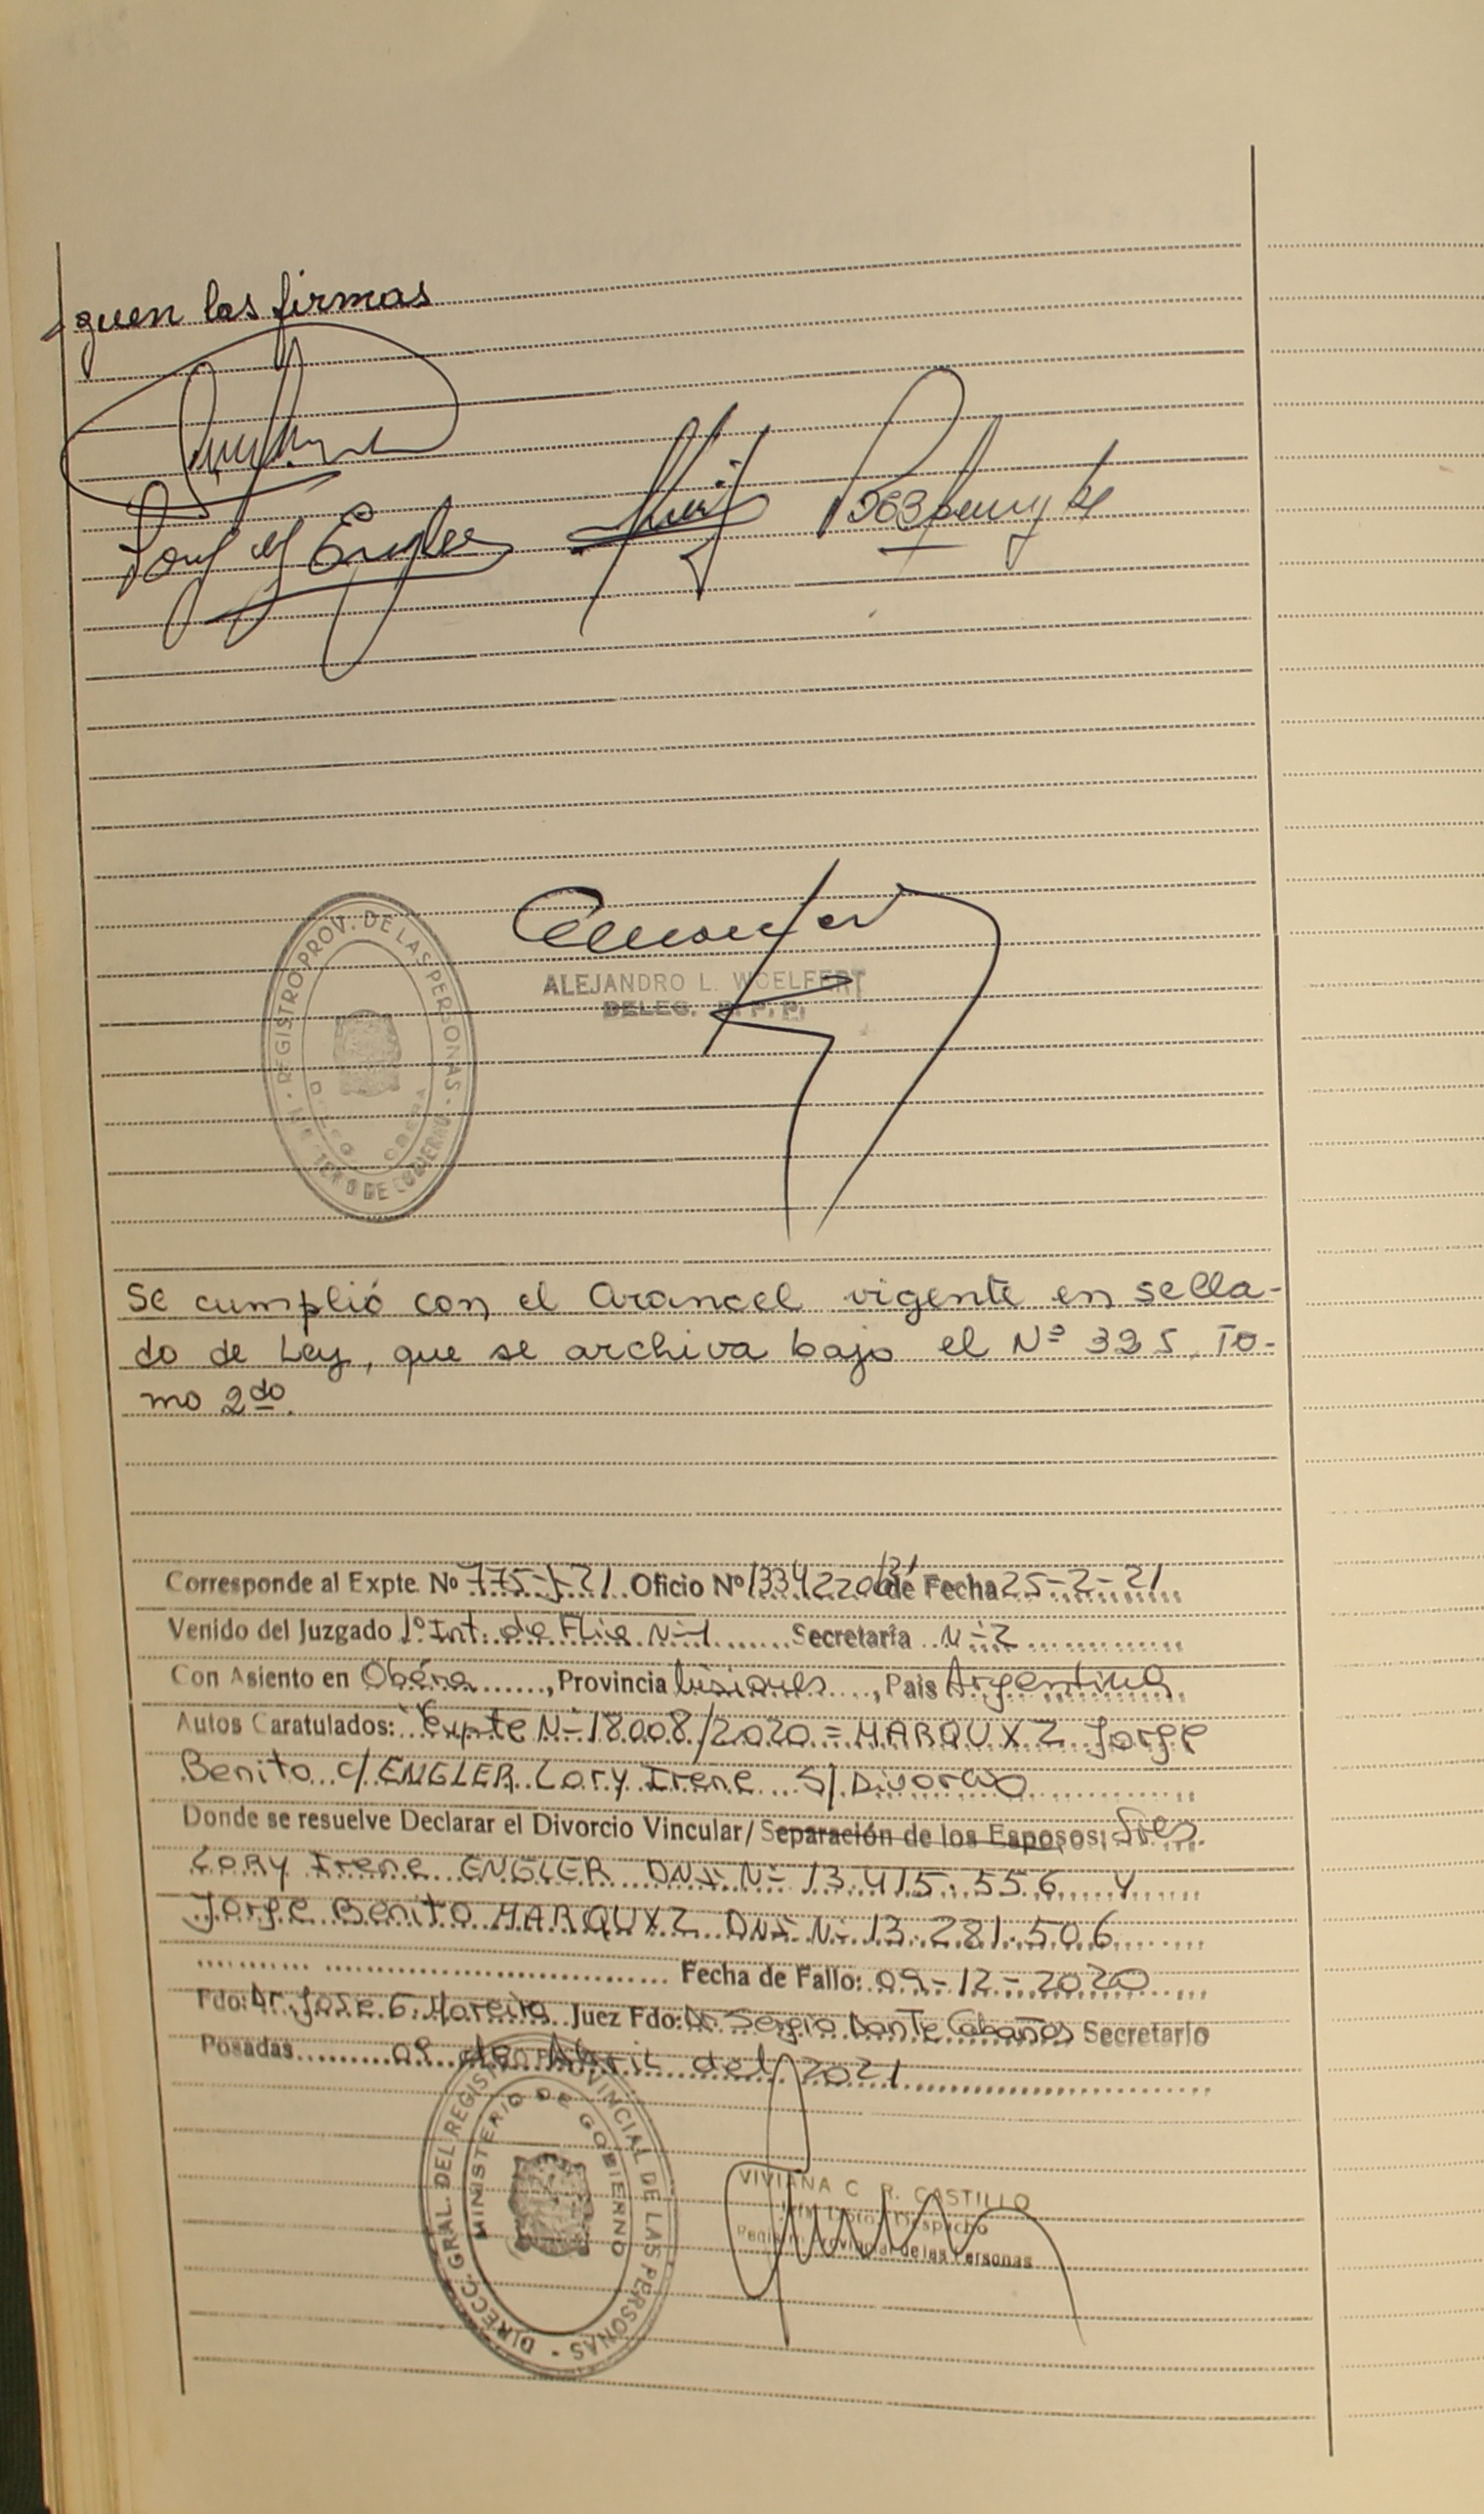 guen las firmas
ALEJANDRO L. WOELFERT
DELEG. R. P. P.
REGISTRO PROV. DE LAS PERSONAS
DE GOBIERNO
Se cumplió con el Arancel vigente en sella-
do de Ley, que se archiva bajo el Nº 325, To-
mo 2do.
Corresponde al Expte. Nº 775-J-21 Oficio Nº 1334220/21 de Fecha 25-2-21
Venido del Juzgado 1º Int. de Flia Nº1 Secretaría Nº 2
Con Asiento en Oberá, Provincia Misiones, País Argentina
Autos Caratulados: Expte Nº 18008/2020 = MARQUXZ Jorge
Benito c/ ENGLER Lory Irene S/ Divorcio
Donde se resuelve Declarar el Divorcio Vincular/Separación de los Esposos: Sres
Lory Irene ENGLER DNI Nº 13.415.556 Y
Jorge Benito MARQUXZ DNI Nº 13.281.506
Fecha de Fallo: 09-12-2020
Fdo: Dr. Jose G. Moreira Juez Fdo: Dr Sergio Dante Cabañas Secretario
Posadas 09 de Abril del 2021
DIRECC. GRAL. DEL REGISTRO PROVINCIAL DE LAS PERSONAS
MINISTERIO DE GOBIERNO
VIVIANA C. R. CASTILLO
Dpto. Despacho
Provincial de las Personas